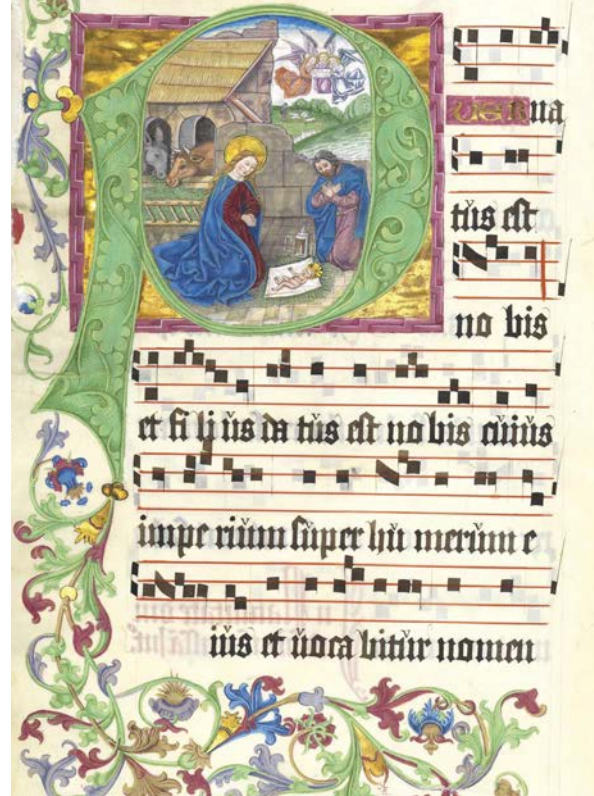 PUER na
tus est
no bis
et fi lj us da tus est no bis cuius
impe rium super hu merum e
ius et uoca bitur nomen